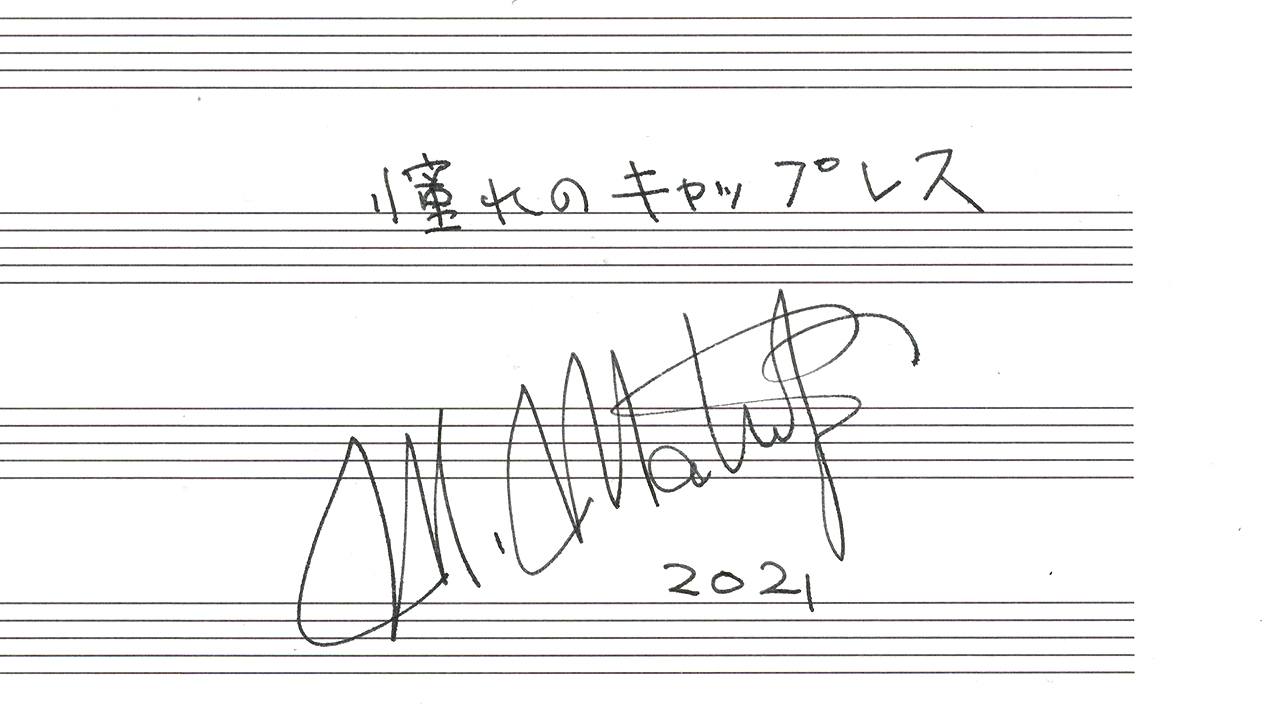 憧れのキャップレス
2021